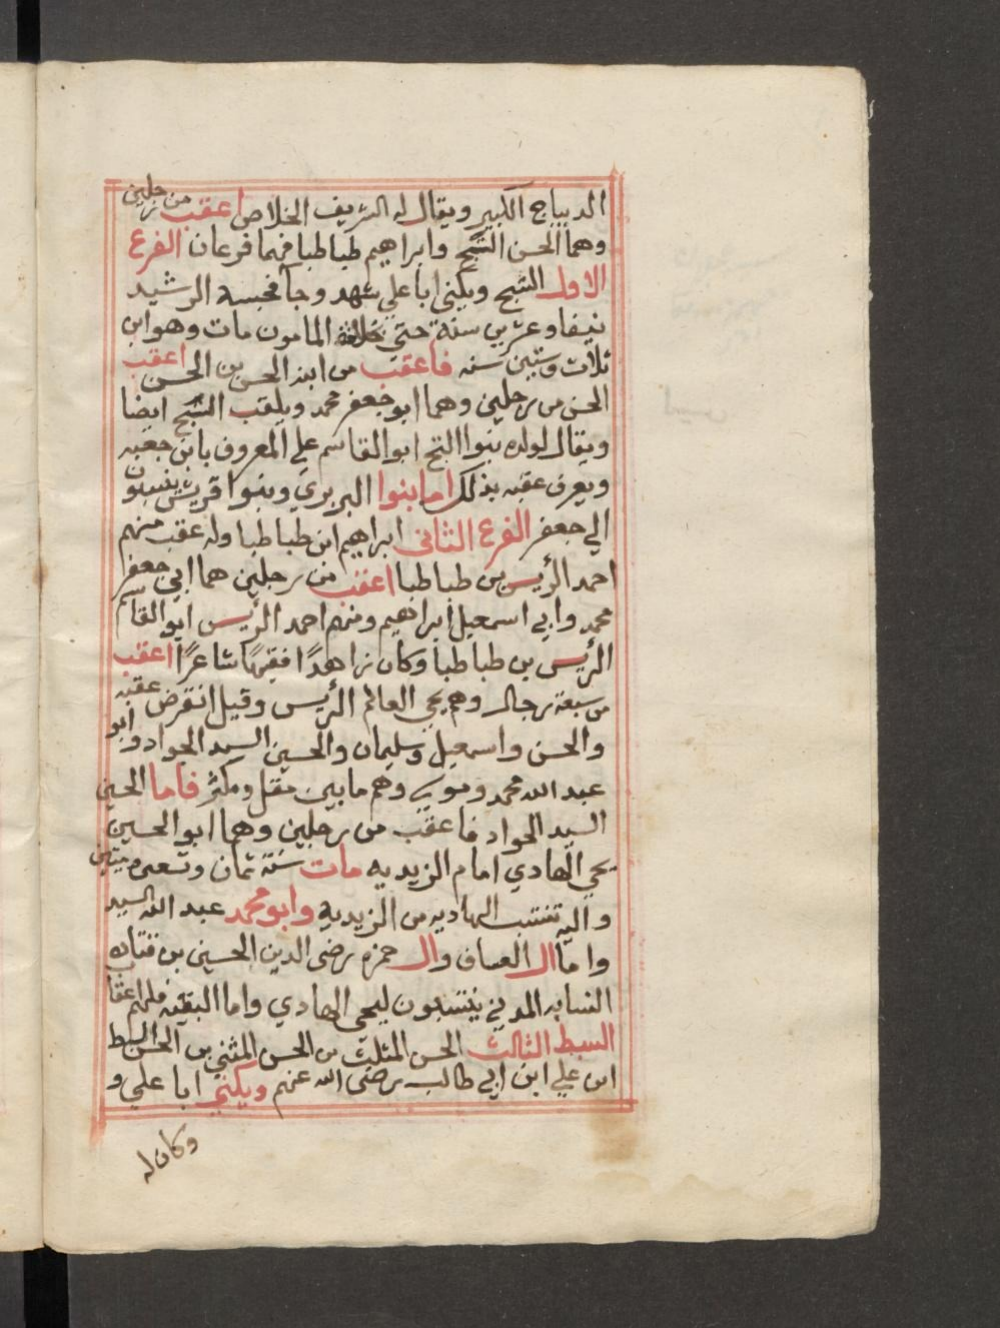 الديباج الكبير ويقال له الشريف الخلاص اعقب من رجلين
وهما الحسن التج وابراهيم طباطبا فهما فرعان الفرع
الاول التج ويكنى ابا علي شهد وجا فحبسه الرشيد
نيفا وعشرين سنة حتى خلافة المامون مات وهو ابن
ثلاث وستين سنه فاعقب من ابنه الحسن بن الحسن اعقب
الحسن من رجلين وهما ابو جعفر محمد ويلقب التج ايضا
ويقال لولده بنوا التج ابو القاسم علي المعروف بابن معيه
ويعرف عقبه بذلك اما بنوا البربري وبنوا قريش ينسبون
الي جعفر الفرع الثانى ابراهيم ابن طباطبا وله عقب منهم
احمد الرئيس بن طباطبا اعقب من رجلين هما ابي جعفر
محمد وابي اسمعيل ابراهيم ومنهم احمد الرئيس ابو القاسم
الرئيس بن طباطبا وكان زاهدًا فقيهًا شاعرًا اعقب
من سبعة رجال وهم يحي العالم الرئيس وقيل انقرض عقبه
والحسن واسمعيل وسليمان والحسين السيد الجواد وابو
عبد الله محمد وموسى وهم ما بين مقل ومكثر فاما الحسين
السيد الجواد فاعقب من رجلين وهما ابو الحسين
يحي الهادي امام الزيديه مات سنة ثمان وتسعين ميتين
واليه تنتسب الهاديه من الزيدية وابو محمد عبد الله السيد
واما ال العساف وال حمزه رضى الدين الحسين بن قتاده
النسابه المدني ينتسبون ليحى الهادي واما البقيه فلهم اعقاب
السبط الثالث الحسن المثلث من الحسن المثني بن الحسن السبط
ابن علي ابن ابي طالب رضى الله عنهم ويكني ابا علي و
وكان له